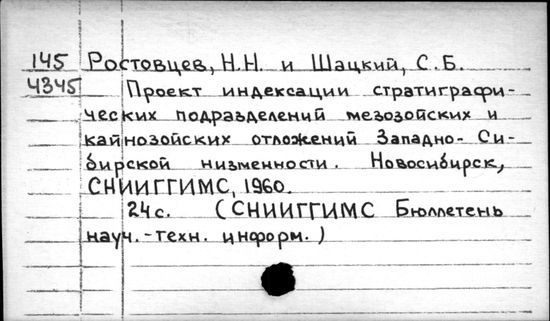 145 Ростовцев, Н.Н. и Шацкий, С.Б.
4345 Проект индексации стратиграфи-
ческих подразделений мезозойских и
кайнозойских отложений Западно-Си-
бирской низменности. Новосибирск,
СНИИГГИМС, 1960.
24с. (СНИИГГИМС Бюллетень
науч.-техн. информ.)